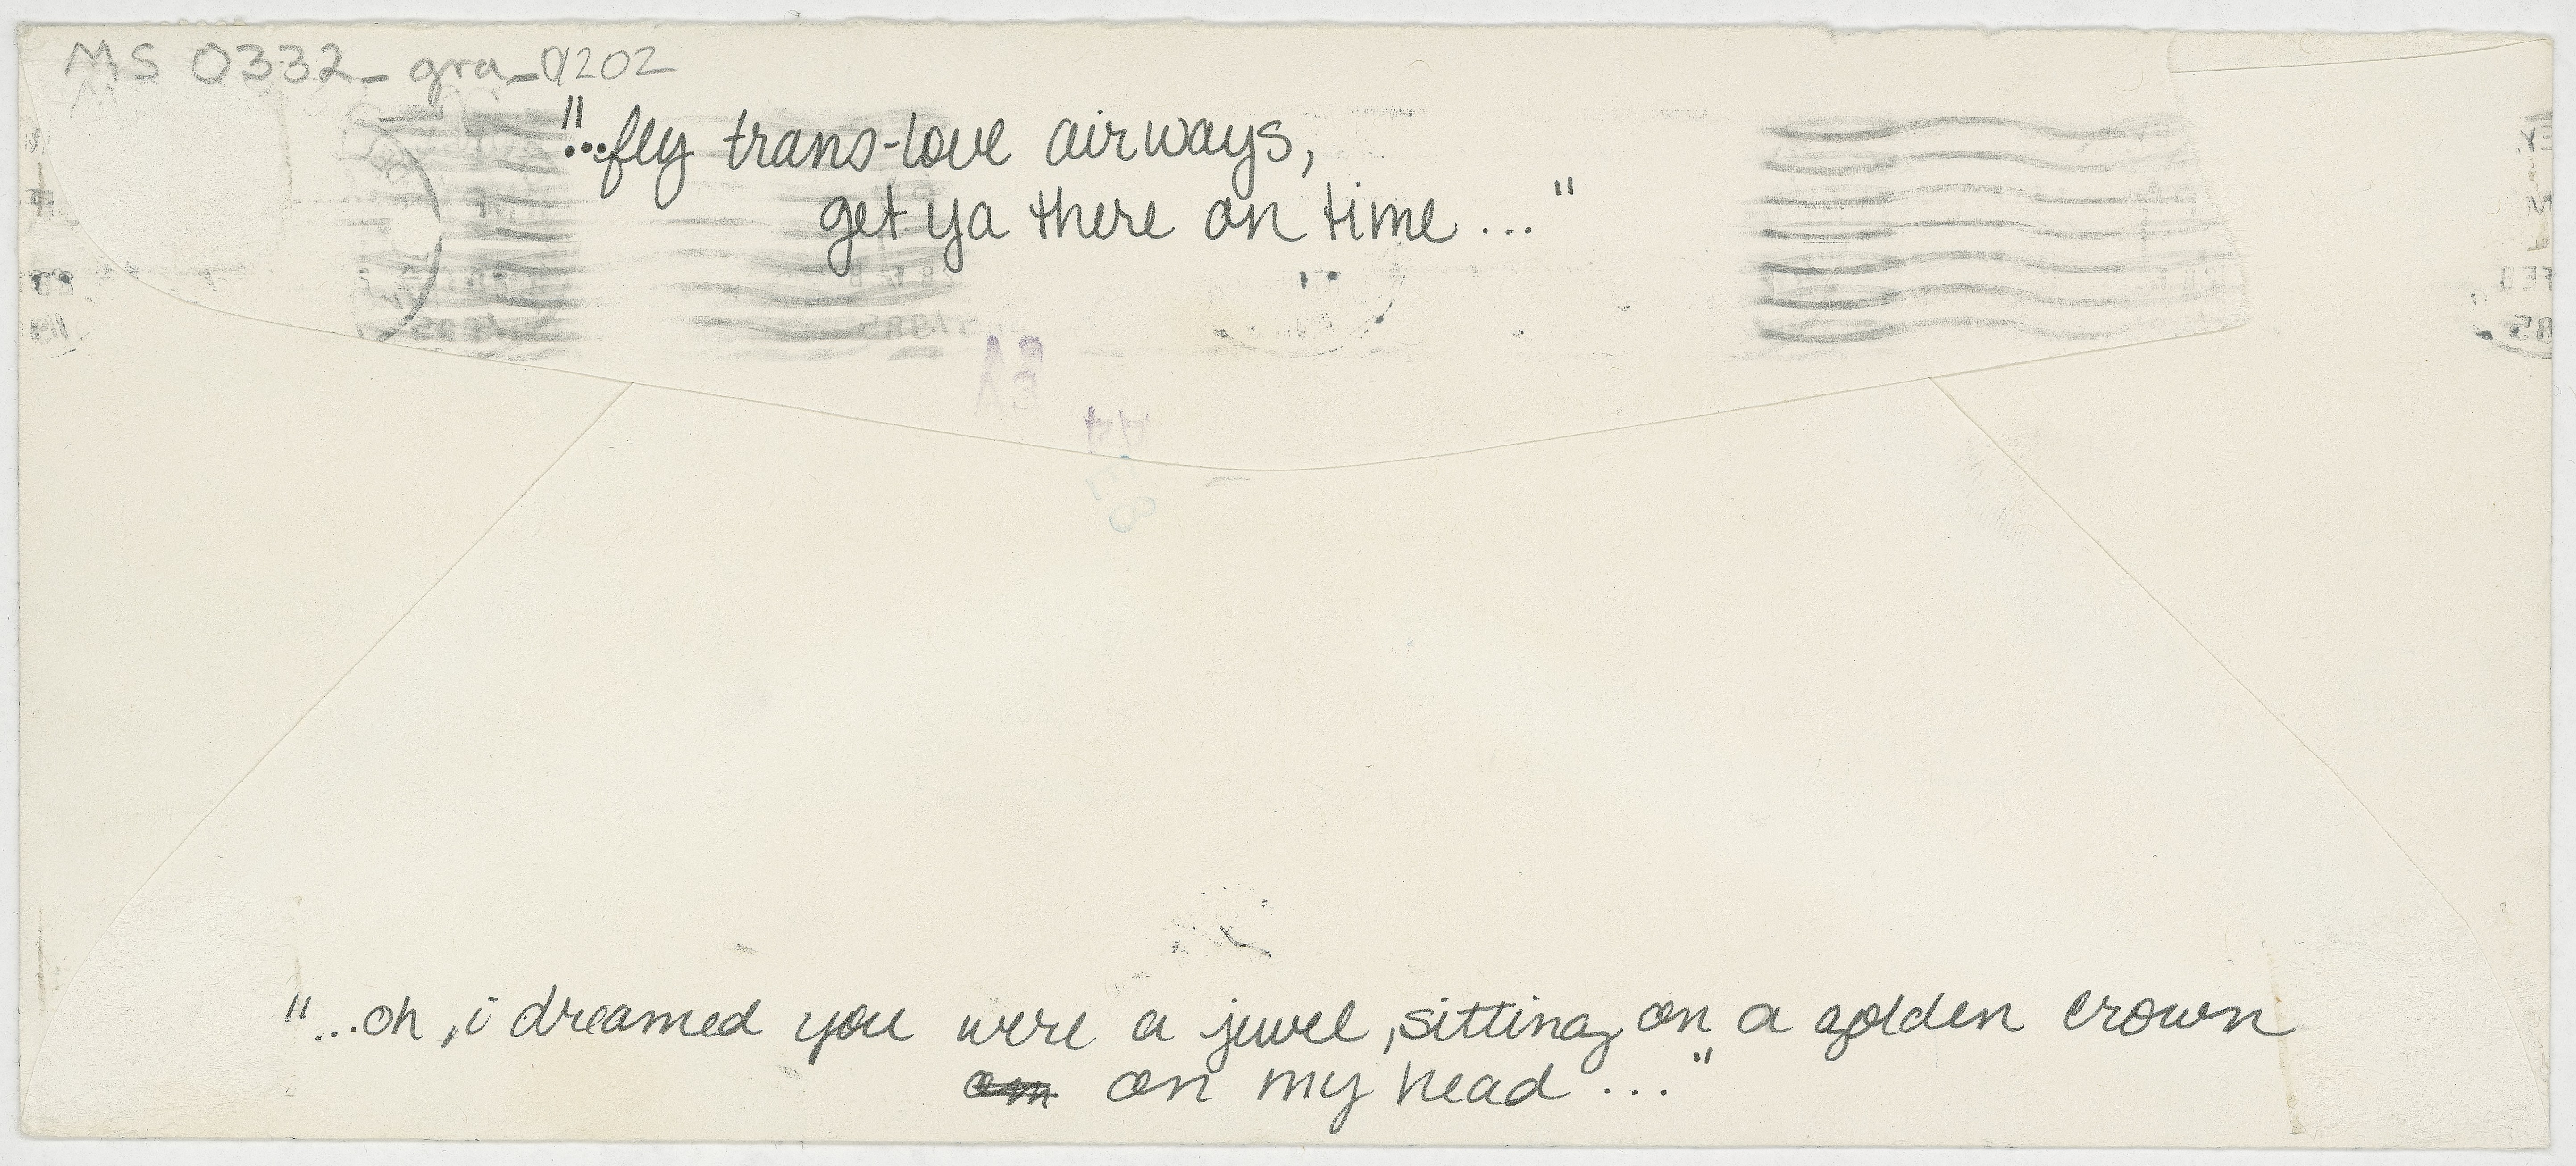 MS 0332_gra_0202
"...fly trans-love airways,
get ya there on time..."
"...oh, i dreamed you were a jewel, sitting on a golden crown
on my head..."